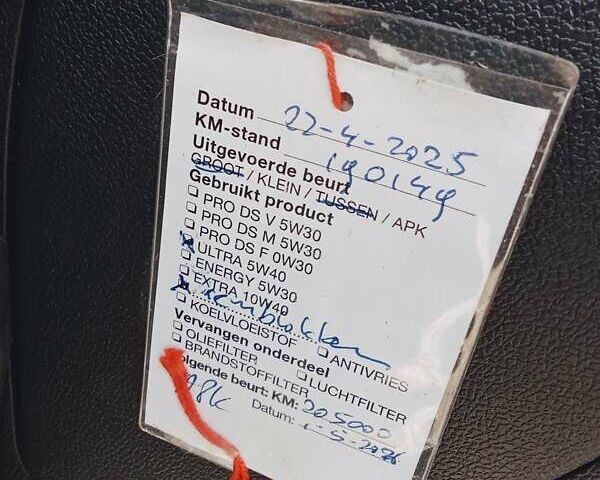 Datum 22-4-2025
KM-stand 190149
Uitgevoerde beurt
GROOT / KLEIN / TUSSEN / APK
Gebruikt product
PRO DS V 5W30
PRO DS M 5W30
PRO DS F 0W30
ULTRA 5W40
ENERGY 5W30
EXTRA 10W40
remblokken
KOELVLOEISTOF ANTIVRIES
Vervangen onderdeel
OLIEFILTER LUCHTFILTER
BRANDSTOFFILTER
olgende beurt: KM: 205000
Datum: 1-5-2026